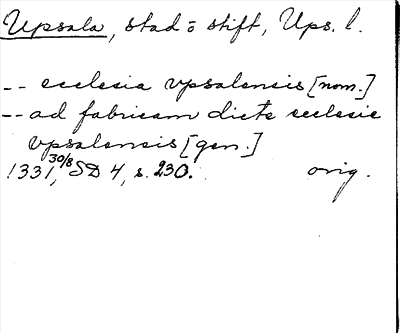 Upsala, stad o stift, Ups. l.
-- ecclesia vpsalensis [nom.]
-- ad fabricam dicte ecclesie
vpsalensis [gen.]
1331, 30/8 SD 4, s. 230. orig.